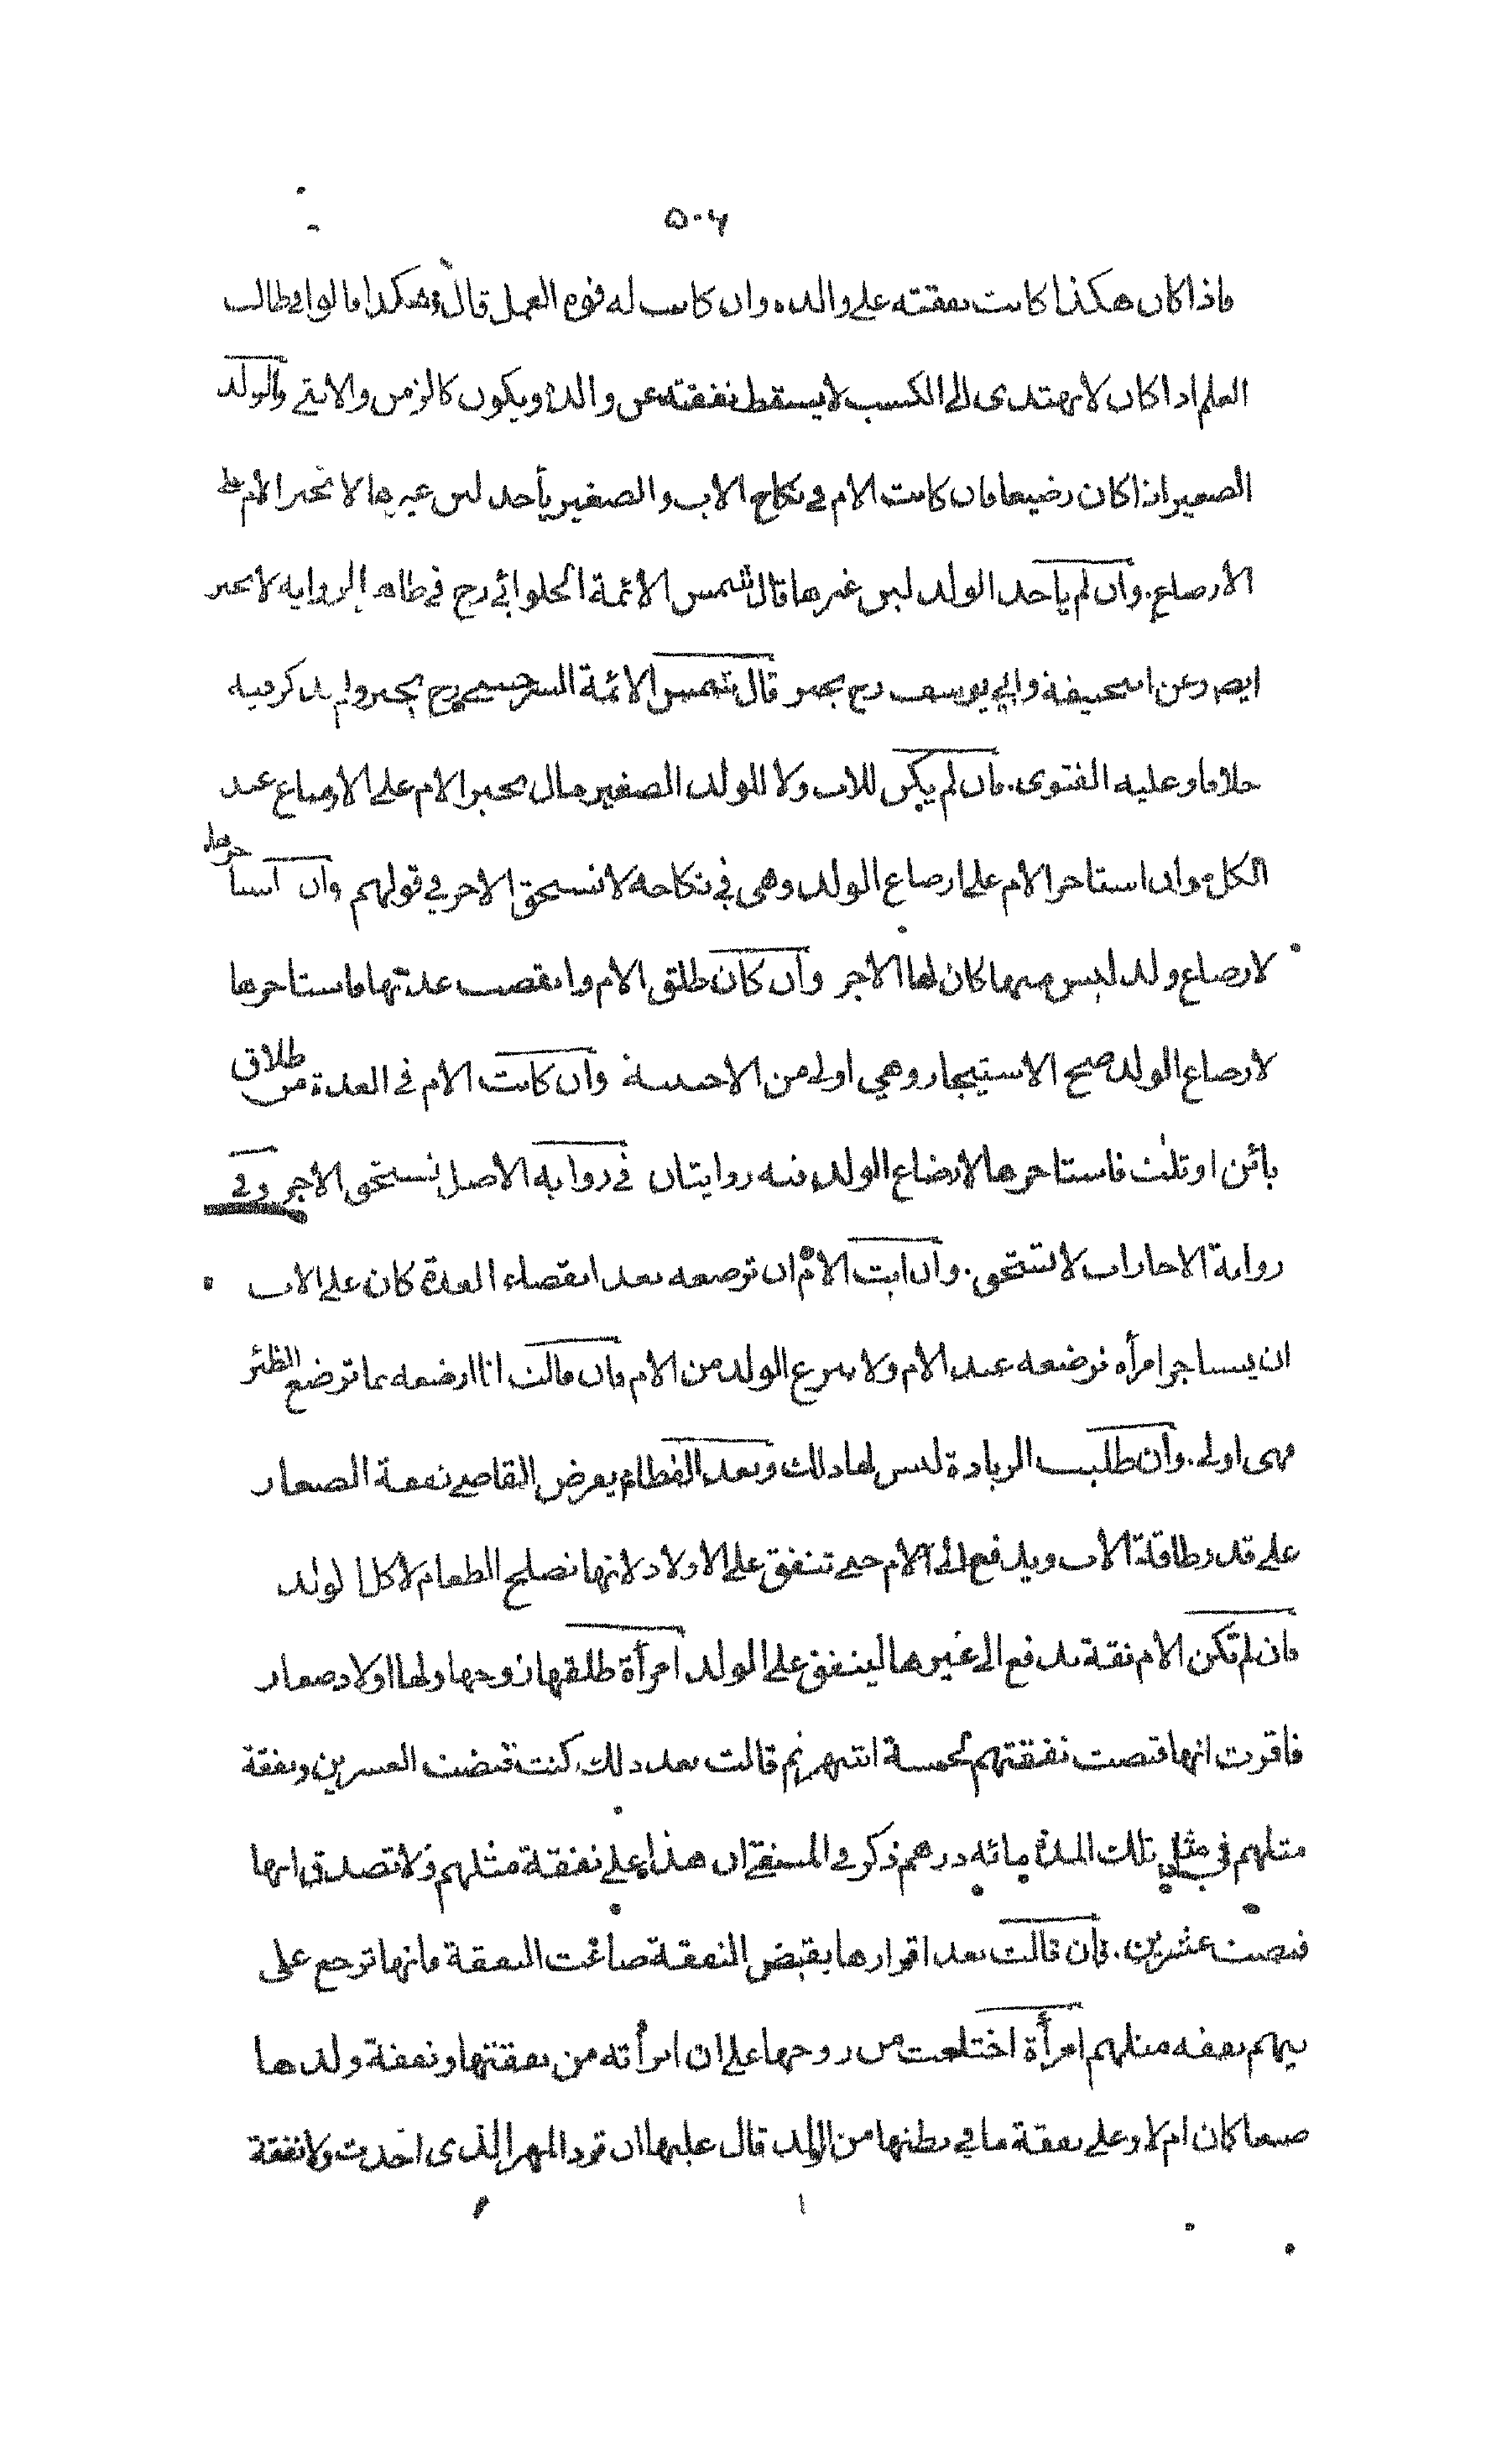 ٥٠٦
فاذا كان هكذا كانت نفقته على والده وان كانت له قوة العمل قال وهكذا قالوا في طالب
العلم اذا كان لا يهتدى الى الكسب لا يسقط نفقته عن والده ويكون كالزمن والانثى والولد
الصغير اذا كان رضيعا فان كانت الام في نكاح الاب والصغير يأخذ لبن غيرها لا تجبر الام على
الارضاع. وان لم ياخذ الولد لبن غيرها قال شمس الائمة الحلوائي رح في ظاهر الرواية لا تجبر
ايضا وعن ابي حنيفة وابي يوسف رح تجبر قال شمس الائمة السرخسي رح تجبر ولم يذكر فيه
خلافا وعليه الفتوى. فان لم يكن للاب ولا للولد الصغير مال تجبر الام على الارضاع عند
الكل وان استاجر الام على ارضاع الولد وهى في نكاحه لا تستحق الاجر في قولهم وان استاجرها
لارضاع ولد ليس منها كان لها الاجر وان كان طلق الام وانقضت عدتها فاستاجرها
لارضاع الولد صح الاستيجار وهي اولى من الاجنبية وان كانت الام في العدة من طلاق
بائن او ثلث فاستاجرها لارضاع الولد فيه روايتان في رواية الاصل تستحق الاجر وفي
رواية الاجارات لا تستحق. وان ابت الام ان ترضعه بعد انقضاء العدة كان على الاب
ان يستاجر امرأة ترضعه عند الام ولا ينزع الولد من الام فان قالت انا ارضعه بما ترضع الظئر
فهى اولى. وان طلبت الزيادة ليس لها ذلك وبعد الفطام يفرض القاضي نفقة الصغار
على قدر طاقة الاب ويدفع الى الام حتى تنفق على الاولاد لانها تصلح الطعام لاكل الولد
فان لم تكن الام ثقة يدفع الى غيرها لينفق على الولد امرأة طلقها زوجها ولها اولاد صغار
فاقرت انها قبضت نفقتهم لخمسة اشهر ثم قالت بعد ذلك كنت قبضت العشرين ونفقة
مثلهم في مثل تلك المدة مائة درهم ذكر في المنتقى ان هذا على نفقة مثلهم ولا تصدق انها
قبضت عشرين. فان قالت بعد اقرارها بقبض النفقة ضاعت النفقة فانها ترجع على
ابيهم بنفقة مثلهم امرأة اختلعت من زوجها على ان ابرأته من نفقتها ونفقة ولدها
رضيعا كان ام لا وعلى نفقة ما في بطنها من الولد قال عليها ان ترد المهر الذى اخذت ولا نفقة